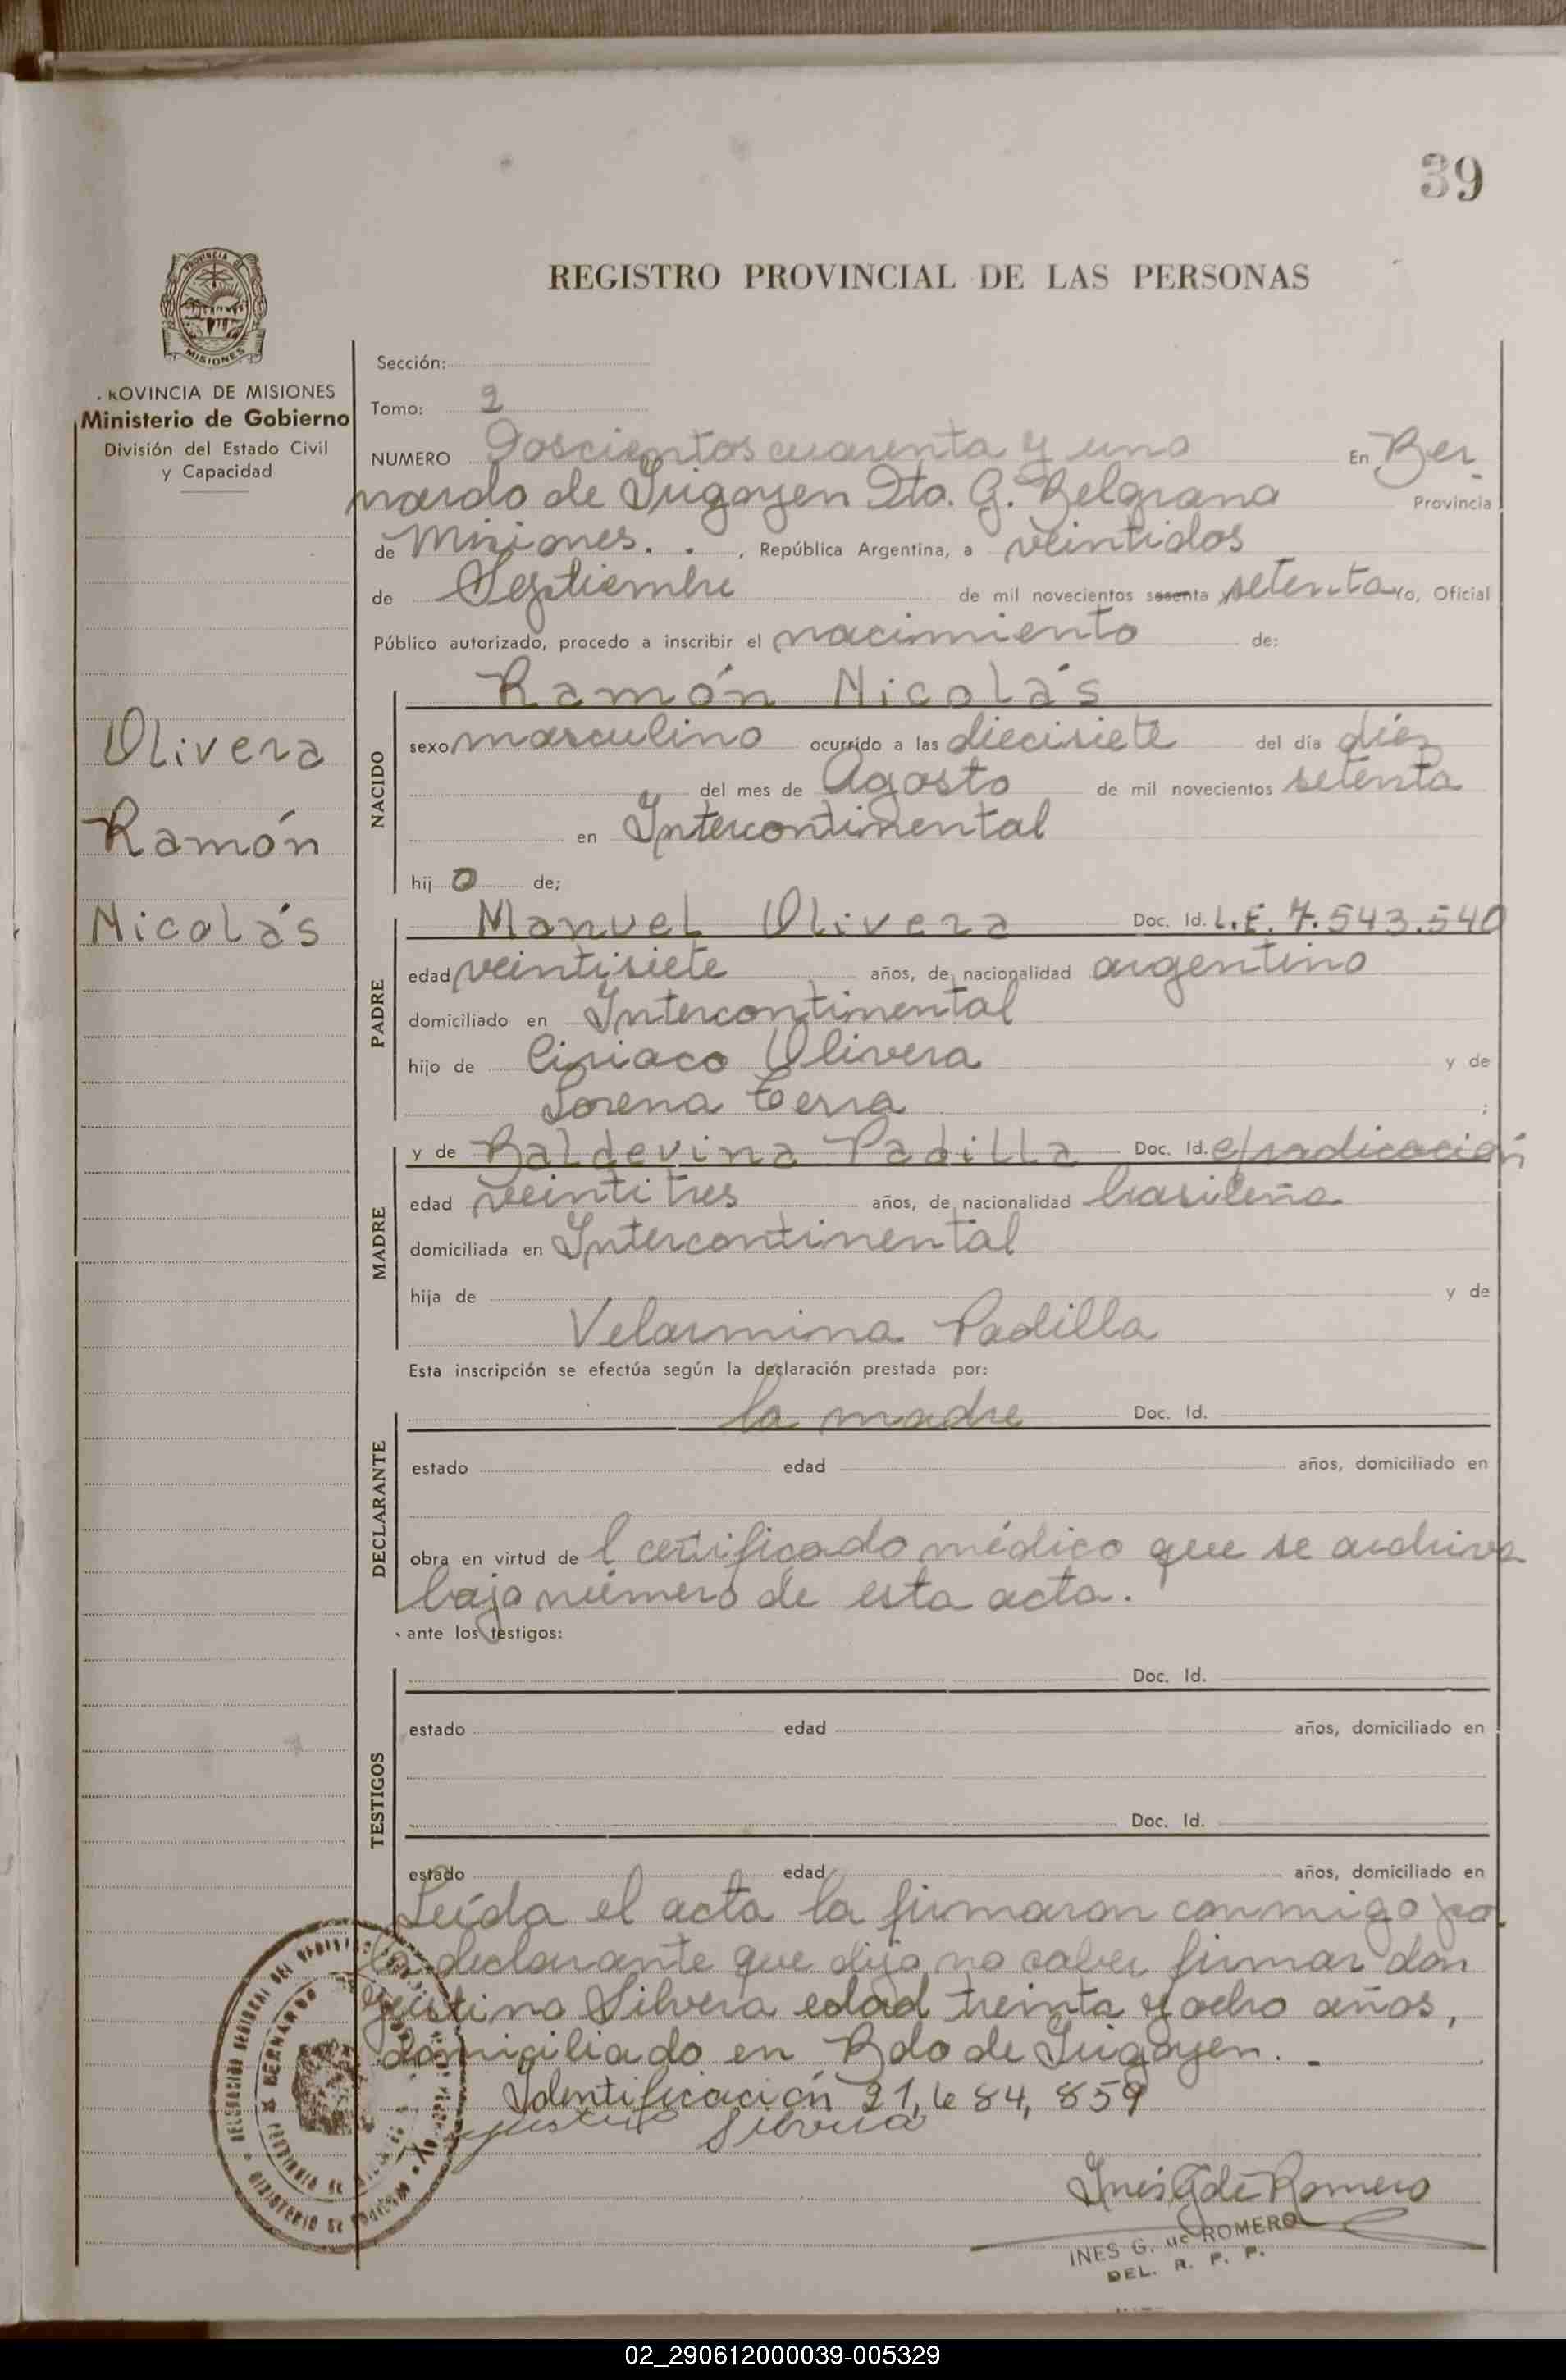 39
REGISTRO PROVINCIAL DE LAS PERSONAS
MISIONES
ROVINCIA DE MISIONES
Ministerio de Gobierno
División del Estado Civil
y Capacidad
Olivera
Ramón
Nicolás
Sección:
Tomo: 2
NUMERO Doscientos cuarenta y uno En Ber
nardo de Irigoyen Dto. G. Belgrano Provincia
de Misiones. . , República Argentina, a veintidos
de Septiembre de mil novecientos sesenta setenta Yo, Oficial
Público autorizado, procedo a inscribir el nacimiento de:
NACIDO
Ramón Nicolás
sexo masculino ocurrido a las diecisiete del día diez
del mes de Agosto de mil novecientos setenta
en Intercontinental
hij o de;
PADRE
Manuel Olivera Doc. Id. L.E. 7.543.540
edad veintisiete años, de nacionalidad argentino
domiciliado en Intercontinental
hijo de Ciriaco Olivera y de
Lorena Terra ;
MADRE
y de Baldevina Padilla Doc. Id. c/radicación
edad veintitres años, de nacionalidad brasileña
domiciliada en Intercontinental
hija de y de
Velarmina Padilla
Esta inscripción se efectúa según la declaración prestada por:
DECLARANTE
la madre Doc. Id.
estado edad años, domiciliado en
obra en virtud de l certificado médico que se archiva
bajo número de esta acta.
ante los testigos:
TESTIGOS
Doc. Id.
estado edad años, domiciliado en
Doc. Id.
estado edad años, domiciliado en
Leída el acta la firmaron conmigo po.
la declarante que dijo no saber firmar don
Justino Silvera edad treinta y ocho años,
domiciliado en Bdo de Irigoyen. -
Identificación 21,684,859
Justino Silvera
Inés G de Romero
INES G. de ROMERO
DEL. R. P. P.
BERNARDO
02_290612000039-005329